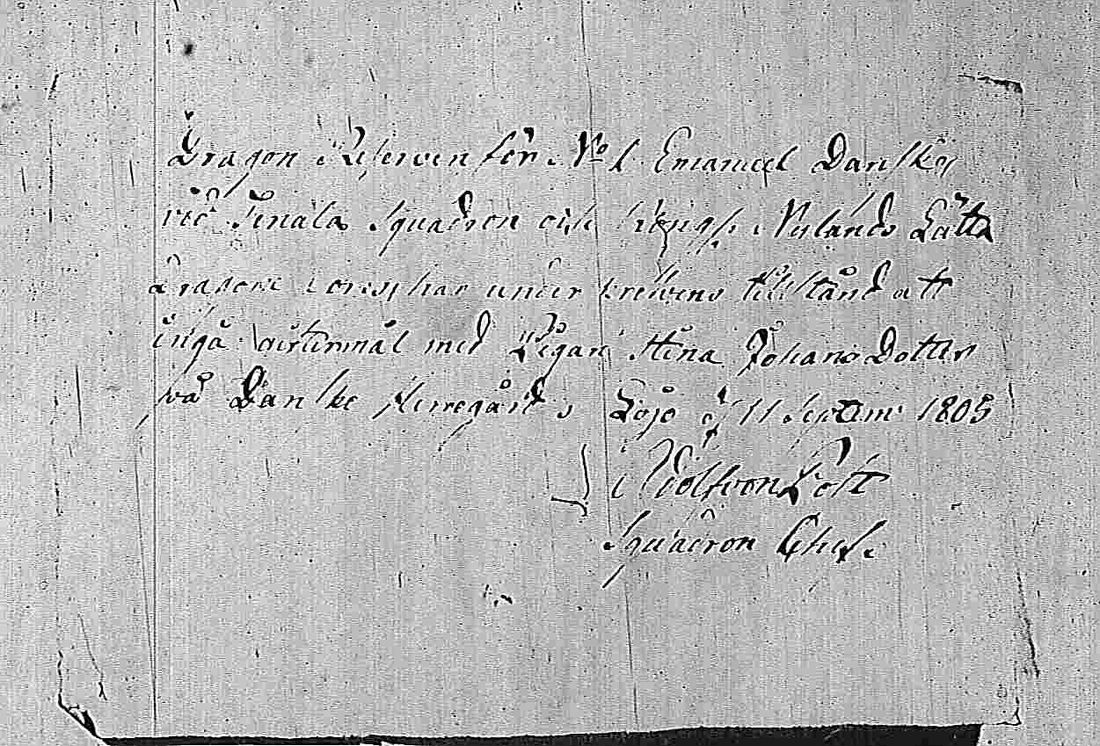 Dragon Reserven för No 1 Emanuel Danskog
vid Tenala Squadron och Kongs. Nylands Lätta
Dragone Corps har under tillstånd att
ingå med Pigan Stina Johans Dotter
på Danske Herregård, Lojo d 11 Septem 1805
von
Squadron Chef.